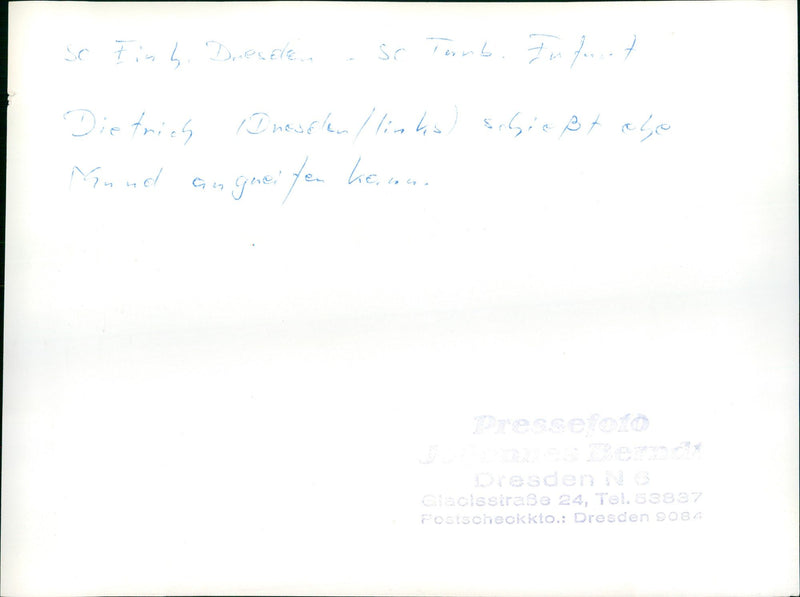 SC Einh. Dresden - SC Turb. Erfurt
Dietrich (Dresden/links) schießt ehe
Mund angreifen kann.
Pressefoto
Johannes Berndt
Dresden N 6
Glacisstraße 24, Tel. 53837
Postscheckkto.: Dresden 9084